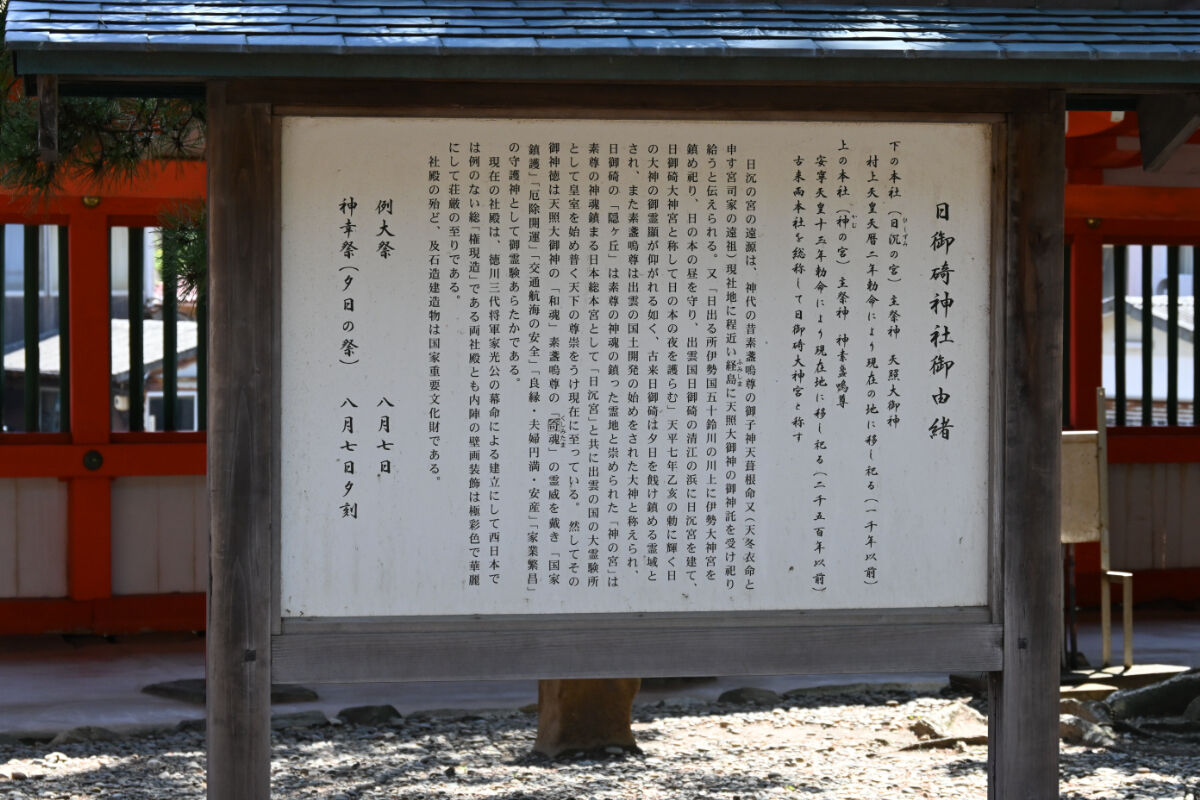 日御碕神社御由緒
下の本社（日沉の宮）主祭神　天照大御神
ひしずみ
村上天皇天暦二年勅命により現在の地に移し祀る（一千年以前）
上の本社（神の宮）主祭神　神素盞嗚尊
かむ
安寧天皇十三年勅命により現在地に移し祀る（二千五百年以前）
古来両本社を総称して日御碕大神宮と称す
日沉の宮の遠源は、神代の昔素盞嗚尊の御子神天葺根命又（天冬衣命と
申す宮司家の遠祖）現社地に程近い経島に天照大御神の御神託を受け祀り
ふみしま
給うと伝えられる。又「日出る所伊勢国五十鈴川の川上に伊勢大神宮を
鎮め祀り、日の本の昼を守り、出雲国日御碕の清江の浜に日沉宮を建て、
日御碕大神宮と称して日の本の夜を護らむ」天平七年乙亥の勅に輝く日
の大神の御霊顕が仰がれる如く、古来日御碕は夕日を餞け鎮める霊域と
され、また素盞嗚尊は出雲の国土開発の始めをされた大神と称えられ、
日御碕の「隠ヶ丘」は素尊の神魂の鎮った霊地と崇められた「神の宮」は
素尊の神魂鎮まる日本総本宮として「日沉宮」と共に出雲の国の大霊験所
として皇室を始め普く天下の尊崇をうけ現在に至っている。然してその
御神徳は天照大御神の「和魂」素盞嗚尊の「奇魂」の霊威を戴き「国家
くしみたま
鎮護」「厄除開運」「交通航海の安全」「良縁・夫婦円満・安産」「家業繁昌」
の守護神として御霊験あらたかである。
現在の社殿は、徳川三代将軍家光公の幕命による建立にして西日本で
は例のない総「権現造」である両社殿とも内陣の壁画装飾は極彩色で華麗
にして荘厳の至りである。
社殿の殆ど、及石造建造物は国家重要文化財である。
例大祭　八月七日
神幸祭（夕日の祭）　八月七日夕刻